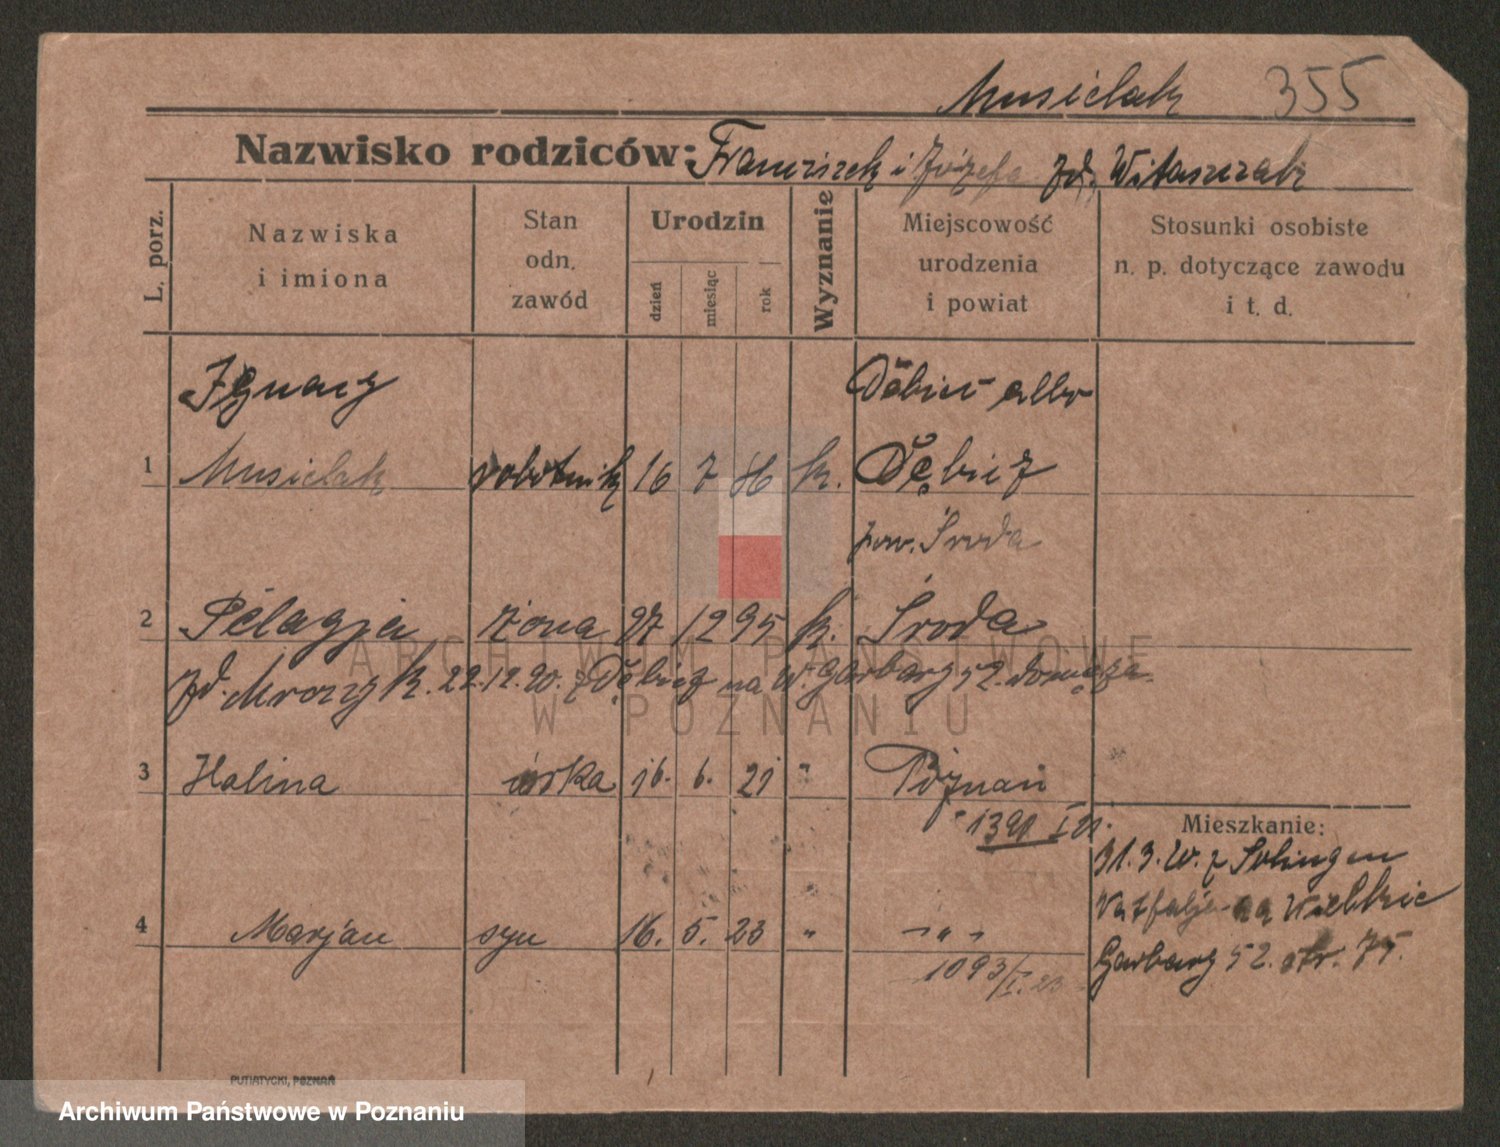 Musielak 355
Nazwisko rodziców: Franciszek i Józefa zd. Witaszczak
L. porz.
Nazwiska
i imiona
Stan
odn.
zawód
Urodzin
dzień
miesiąc
rok
Wyznanie
Miejscowość
urodzenia
i powiat
Stosunki osobiste
n. p. dotyczące zawodu
i t. d.
Ignacy Dębiec albo
1 Musielak robotnik 16 7 86 k. Dębicz
pow. Środa
2 Pelagja żona 27 12 95 k. Środa
zd. Mrozyk. 22.12.20. z Dębicz na W. Garbary 52.
3 Halina córka 16. 6. 21 " Poznań
1390 I 21.
Mieszkanie:
31.3. z Solingen
na Wielkie
4 Marjan syn 16. 5. 23 " " " "
Garbary 52. str. 75.
1093/I. 23
PUTIATYCKI, POZNAŃ
ARCHIWUM PAŃSTWOWE
W POZNANIU
Archiwum Państwowe w Poznaniu